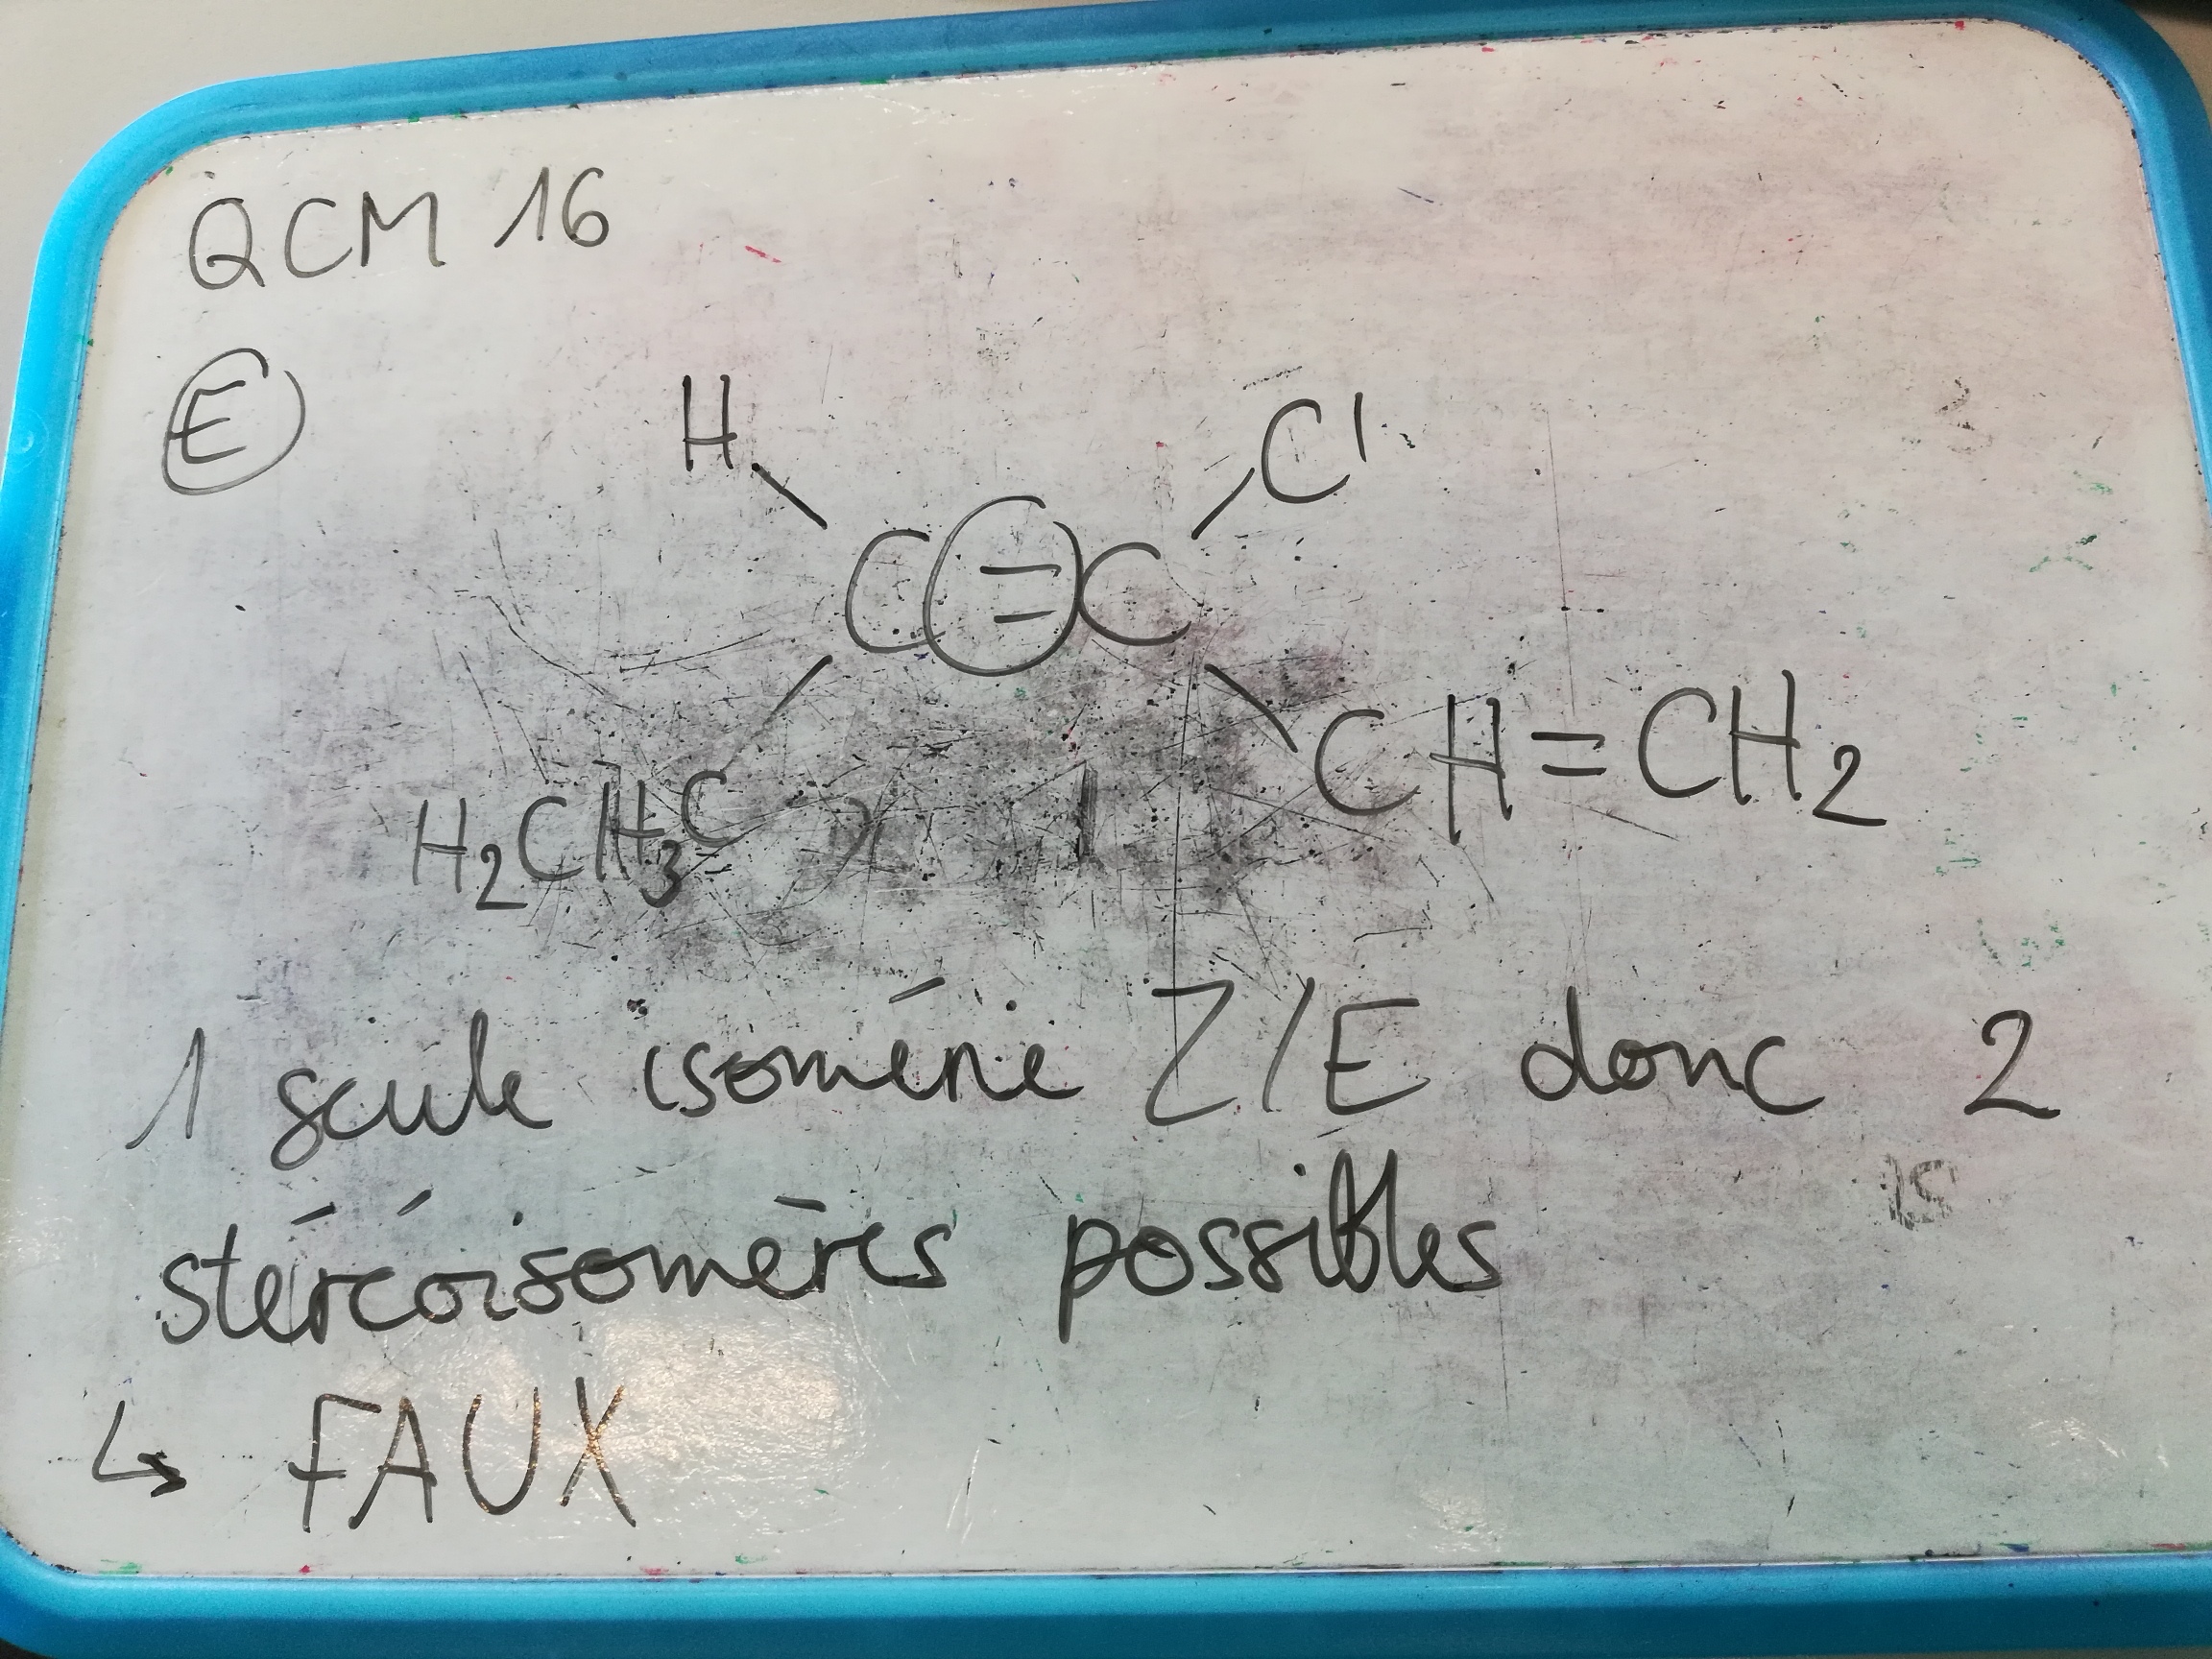 QCM 16
E
H Cl
C=C
CH=CH2
H2CH3C
1 seule isomérie Z/E donc 2
stéréoisomères possibles
↳ FAUX